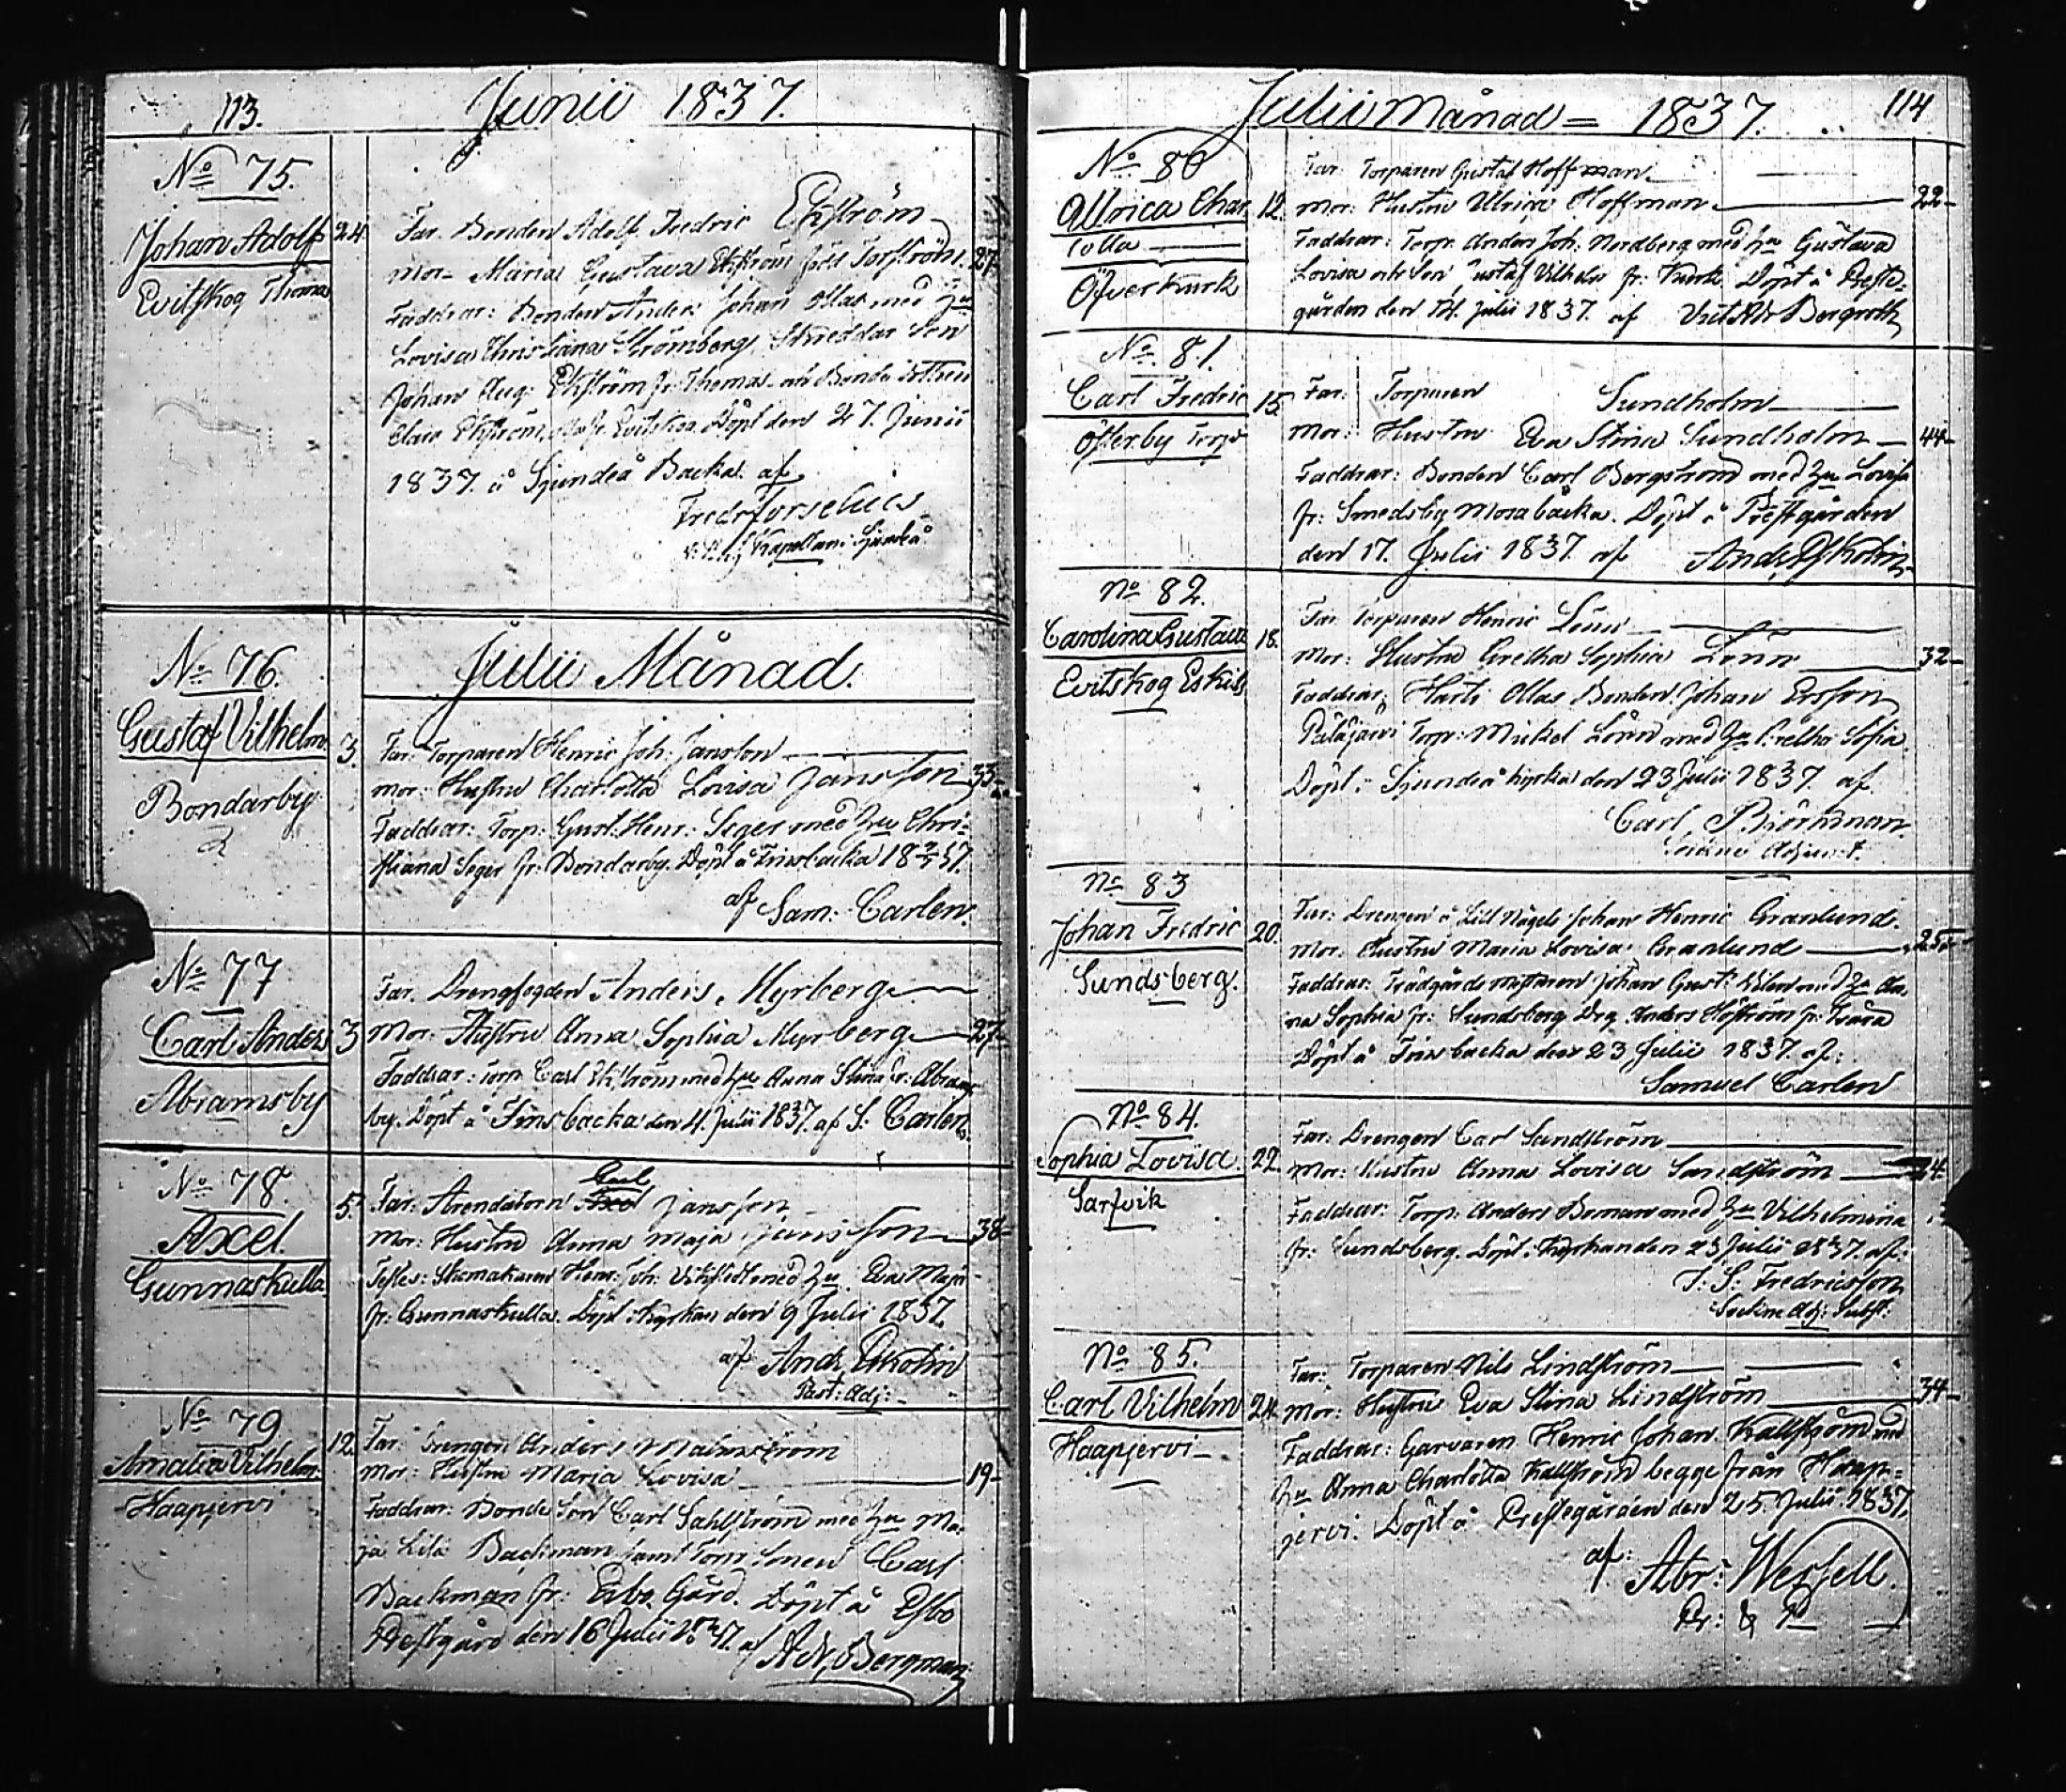 113.
Junii 1837.
No 75.
Johan Adolf
Evitskog Thomas
24.
Far. Bonden Adolf Fredric Ekström
Mor- Maria Gustava Ekström född Torström. 27-
Faddrar: Bonden Anders Johan Ollas med Hu
Lovisa Christiana Strömberg, Skreddar Son
Johan Aug: Ekström fr: Thomas och Bonde dottren
Clara Ekström, Evitskog Döpt den 27. Junii
1837. å Sjundeå Backa. af
Fredr Forselius
Kapellan i Sjundeå
Julii Månad.
No 76.
Gustaf Vilhelm
Bondarby
3.
Far- Torparen Henric Joh: Jansson
Mor: Hustru Charlotta Lovisa Jansson 33-
Faddrar: Torp: Gust: Henr: Seger med Hu Chri-
stiana Seger fr: Bondarby. Döpt å Finsbacka 18 37.
af Sam: Carlen.
No 77
Carl Anders
Abramsby
3
Far. Drengfogden Anders Myrberg
Mor. Hustru Anna Sophia Myrberg 27-
Faddrar: Torp Carl Ekström med Hu Anna Stina fr: Abrams
by. Döpt å Finsbacka den 4. Julii 1837. af S: Carlen.
No 78.
Axel
Gunnaskulla
5.
Carl
Far: Arendatorn Axel Jansson
Mor: Hustru Anna Maja Jansson 38-
Testes: Skomakaren Henr: Joh: Vikstedt med Hu Eva Maja
fr: Gunnaskulla. Döpt i Kyrkan den 9 Julii 1837.
af Andr Ekholm
Past: Adj:-
No 79
Amalia Vilhelm:
Haapjervi
12.
Far: Drengen Anders Malmström
Mor: Hustru Maria Lovisa 19-
Faddrar: Bonde Son Carl Sahlström med Hu Ma-
ja Lisa Backman samt Torp Sonen Carl
Backman fr: Esbo Gård. Döpt å Esbo
Prestgård den 16 Julii 1837. af
A. N. Bergman
Julii Månad = 1837.
114
No 80
Ullrica Char
lotta
Öfverkurk
12.
Far: Torparen Gustaf Hoffman
Mor: Hustru Ulrica Hoffman 22-
Faddrar: Torp: Anders Joh: Nordberg med Hu Gustava
Lovisa och Son Gustaf Vilhelm fr: Kurk Döpt å Preste-
gården den 14. Julii 1837. af Bergroth
No 81.
Carl Fredric
Österby Torp
15.
Far: Torparen Sundholm
Mor: Hustru Eva Stina Sundholm 44-
Faddrar: Bonden Carl Bergström med Hu Lovisa
fr: Smedsby Mosabacka. Döpt å Prestgården
den 17. Julii 1837. af Andr Ekholm
No 82.
Carolina Gustava
Evitskog Eskils
18.
Far Torparen Henric Lönn
Mor: Hustru Gretha Sophia Lönn 32-
Faddrar: Harts Ollas Bonden Johan Ersson
Palajärvi Torp: Mickel Lönn med Hu Gretha Sofia.
Döpt i Sjundeå kyrka den 23 Julii 1837. af
Carl Björnman
Sockne Adjunct.
No 83
Johan Fredric
Sundsberg.
20.
Far: Drengen å Lill Nägels Johan Henric Granlund.
Mor: Hustru Maria Lovisa Granlund 25-
Faddrar: Trädgårds mästaren Johan Gust: Vilen med Hu An-
na Sophia fr: Sundsberg Drg Anders Höström fr: Tvära
Döpt å Finsbacka den 23 Julii 1837. af:
Samuel Carlen
No 84.
Sophia Lovisa.
Sarfvik
22.
Far: Drengen Carl Sandström
Mor: Hustru Anna Lovisa Sandström 24.
Faddrar: Torp: Anders Boman med Hu Vilhelmina
fr: Sundsberg. Döpt i Kyrkan den 23 Julii 1837. af:
J: S: Fredricsson
Sockne Adj: Subst:
No 85.
Carl Vilhelm
Haapjervi
24.
Far: Torparen Nils Lindström
Mor: Hustru Eva Stina Lindström 34-
Faddrar: Garvaren Henric Johan Kallström med
Hu Anna Charlotta Kallström begge från Haap-
jervi. Döpt å Prestegården den 25 Julii 1837.
af: Abr: Wessell.
Pr: & P